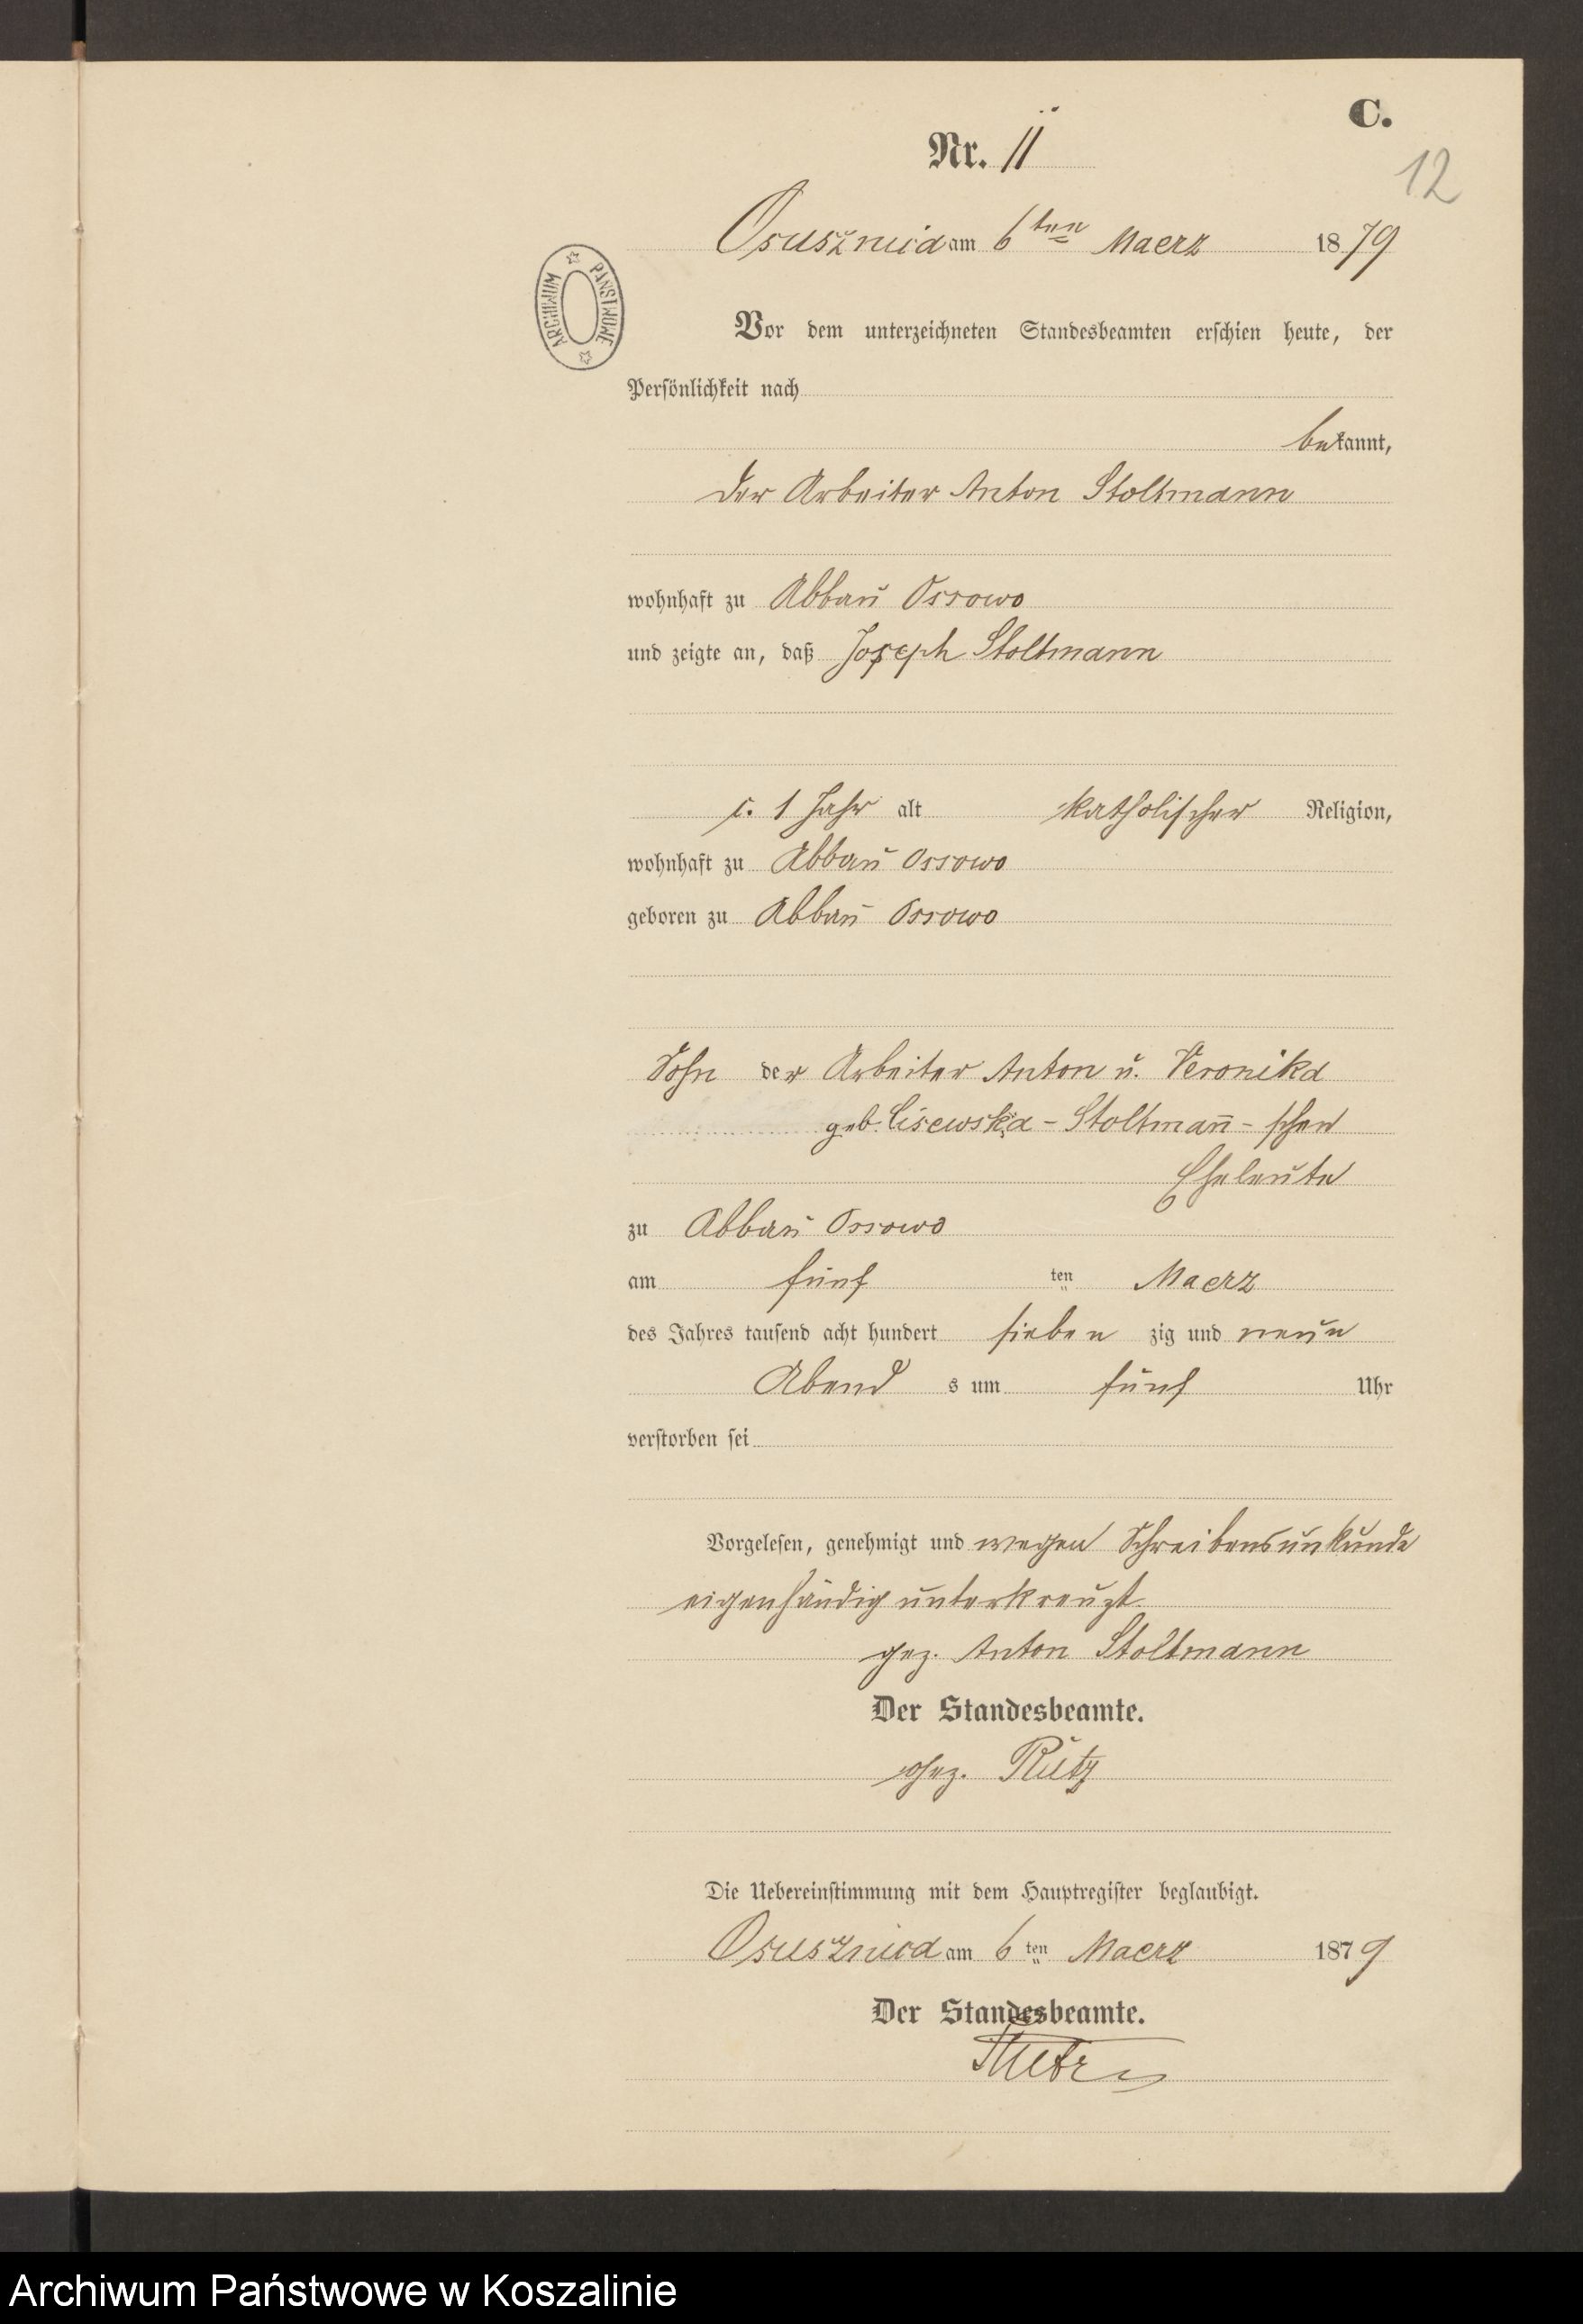 C.
Nr. 11
12
Osusznica am 6ten Maerz 1879
ARCHIWUM PAŃSTWOWE
Vor dem unterzeichneten Standesbeamten erschien heute, der
Persönlichkeit nach
bekannt,
der Arbeiter Anton Stoltmann
wohnhaft zu Abbau Ossowo
und zeigte an, daß Joseph Stoltmann
c. 1 Jahr alt katholischer Religion,
wohnhaft zu Abbau Ossowo
geboren zu Abbau Ossowo
Sohn der Arbeiter Anton u. Veronika
geb. Cisewska - Stoltmann̄ - schen
Eheleute
zu Abbau Ossowo
am fünf ten Maerz
des Jahres tausend acht hundert sieben zig und neun
Abend s um fünf Uhr
verstorben sei
Vorgelesen, genehmigt und wegen Schreibensunkunde
eigenhändig unterkreuzt
gez. Anton Stoltmann
Der Standesbeamte.
gez. Rutz
Die Uebereinstimmung mit dem Hauptregister beglaubigt.
Osusznica am 6 ten Maerz 1879
Der Standesbeamte.
Rutz
Archiwum Państwowe w Koszalinie